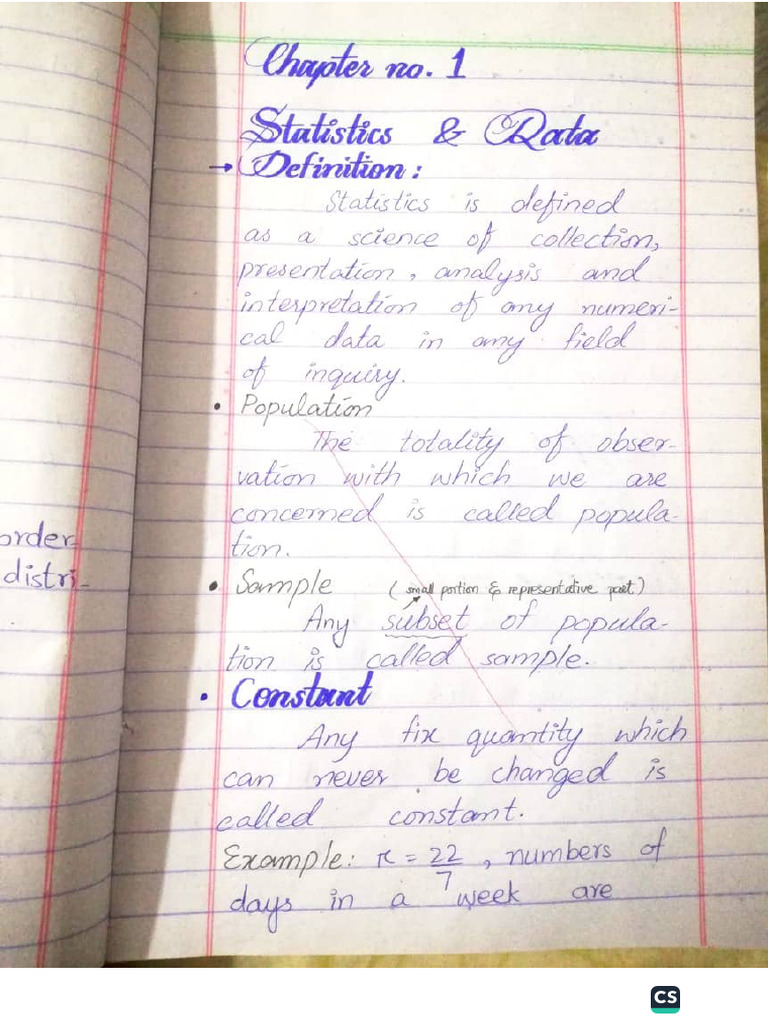 Chapter no. 1
Statistics & Data
→ Definition :
Statistics is defined
as a science of collection,
presentation, analysis and
interpretation of any numeri-
cal data in any field
of inquiry.
• Population
The totality of obser-
vation with which we are
concerned is called popula-
tion.
order-
distri-
• Sample (small portion & representative part)
Any subset of popula-
tion is called sample.
• Constant
Any fix quantity which
can never be changed is
called constant.
Example: π = 22/7, numbers of
days in a week are
CS